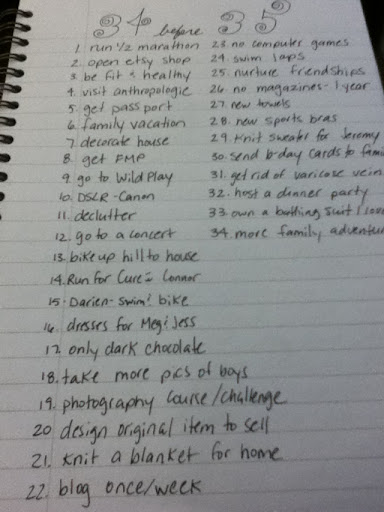 34 before 35
1. run 1/2 marathon
2. open etsy shop
3. be fit & healthy
4. visit anthropologie
5. get passport
6. family vacation
7. decorate house
8. get FMP
9. go to Wild Play
10. DSLR - Canon
11. declutter
12. go to a concert
13. bike up hill to house
14. Run for Cure - Connor
15. Darien - swim & bike
16. dresses for Meg & Jess
17. only dark chocolate
18. take more pics of boys
19. photography course/challenge
20 design original item to sell
21. knit a blanket for home
22. blog once/week
23. no computer games
24. swim laps
25. nurture friendships
26. no magazines - 1 year
27. new towels
28. new sports bras
29. Knit sweater for Jeremy
30. send b-day cards to family
31. get rid of varicose vein
32. host a dinner party
33. own a bathing suit I love
34. more family adventu